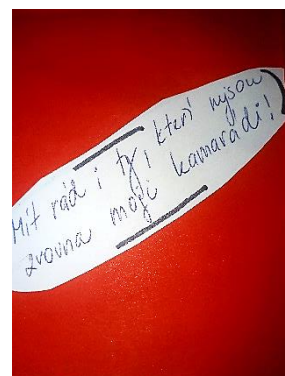 Mít rád i ty, kteří nejsou
zrovna moji kamarádi!